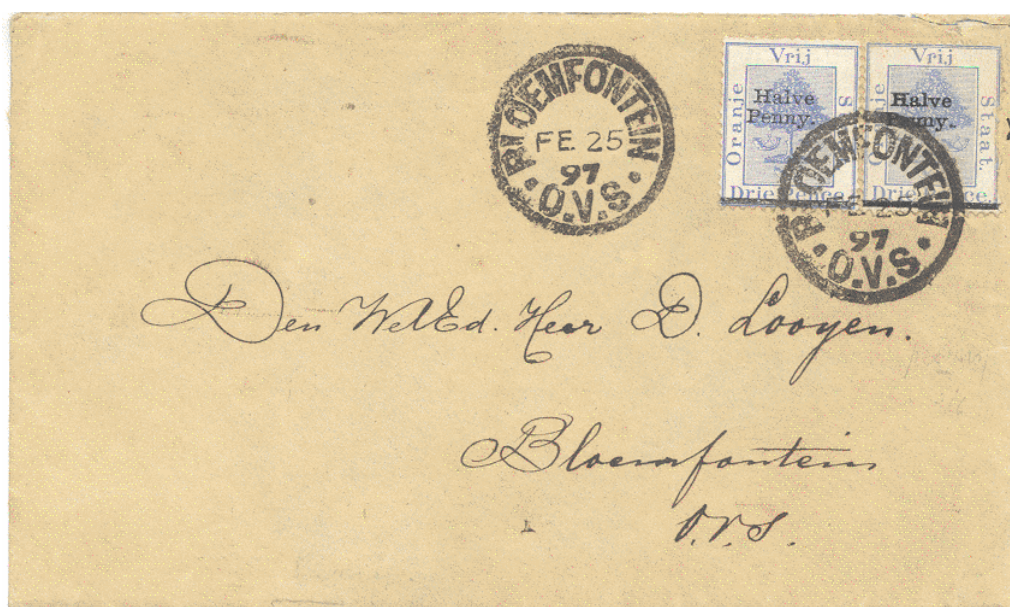 BLOEMFONTEIN
FE 25
97
O.V.S.
Vrij
Oranje
S
Halve
Penny.
Drie Pence
Vrij
Staat.
Halve
Penny.
Drie Pence.
BLOEMFONTEIN
FE 25
97
O.V.S.
Den WelEd. Heer D. Looyen.
Bloemfontein
O.V.S.